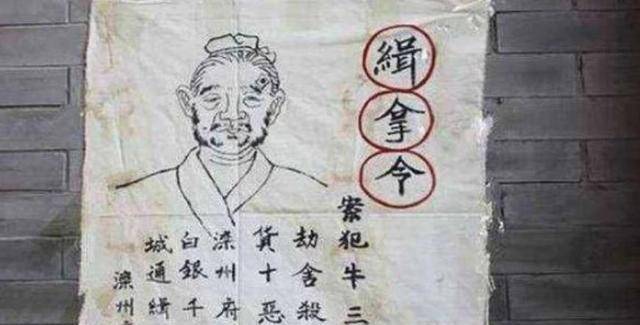 緝拿令
案犯牛三
劫舍殺
貨十惡
滦州府
白銀千
城通緝
滦州